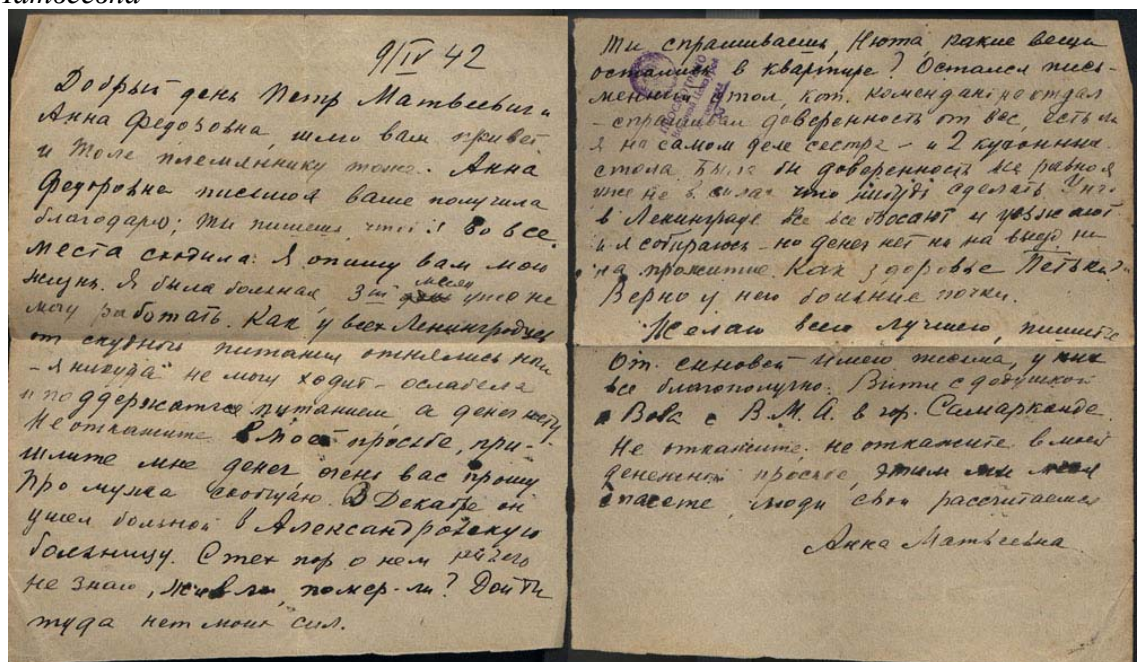 9/IV 42
Добрый день Петр Матвеевич и
Анна Федоровна, шлю вам привет
и Толе племяннику тоже. Анна
Федоровна письмо я ваше получила
благодарю; ты пишеш, что во все
места сходила. Я опишу вам мою
жизнь. Я была больная, 3ий месяц уже не
могу работать. Как у всех Ленинградцев
от скудного питания отнялись ноги
- я никуда не могу ходит - ослабела
и поддержаться питанием а денег нету.
Не откажите в моей просьбе, при-
шлите мне денег, очень вас прошу
Про мужа сообщаю. В Декабре он
ушел больной в Александровскую
больницу. С тех пор о нем ничего
не знаю, жив ли, помер-ли? Дойти
туда нет моих сил.
Ты спрашиваешь, Нюта, какие вещи
остались в квартире? Остался пись-
менный стол, кот. комендант не отдал
- спрашивал доверенность от вас, есть ли
я на самом деле сестра - и 2 кухонных
стола. Была бы доверенность все равно я
уже не в силах что нибудь сделать. У нас
в Ленинграде все все и уезжают
и я собираюсь - но денег нет ни на выезд ни
на прожитие. Как здоровье Петьки?
Верно у него больные почки.
Желаю всего лучшего, пишите
От. сыновей имею письма, у них
все благополучно. Витя с дедушкой
а Вова с В.М.А. в гор. Самарканде.
Не откажите, не откажите в моей
денежной просьбе, этим мы меня
спасете, люди свои рассчитаемся
Анна Матвеевна